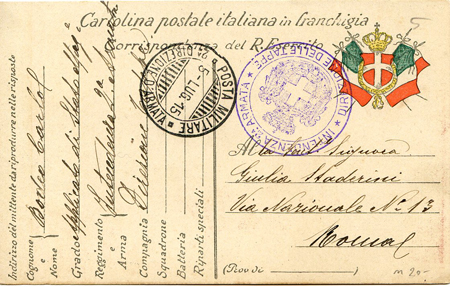 Cartolina postale italiana in franchigia
Corrispondenza del R. Esercito
5
POSTA MILITARE
2ª DIREZIONE D'ARMATA
5 LUG 15
DIREZIONE DELLE TAPPE
INTENDENZA 2ª ARMATA
Alla Signora
Giulia Staderini
Via Nazionale N.º 13
Roma
(Prov. di )
m 20-
Indirizzo del mittente da riprodurre nelle risposte
Cognome e Nome
Grado Applicato di Stato
Reggimento Intendenza 2ª Armata
Arma Direzione
Compagnia
Squadrone
Batteria
Riparti speciali